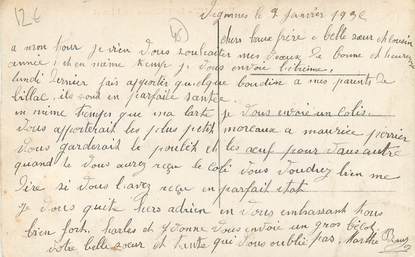 12€
le 2 janvier 1932
chers beaux frère e belle sœur et cousin
a mon tour je vien vous souhaiter mes vœaux de bonne et heureuse
année; et en même temps je vous envoie
lundi dernier jais apportée quelque boudins a mes parents de
billac, ils sont en parfaite santée.
en même temps que ma carte je vous envoie un colis.
vous apporterait les plus petit morceaux a maurice perrier
vous garderait le poutit et les oeuf pour vous autre
quand le vous aurez reçu le coli vous voudrez bien me
dire si vous l'avez reçu en parfait état
je vous quitt chers adrien en vous embrassant tous
bien fort. charles et Yvonne vous envoie un gros
votre belle sœur et tante qui vous oublie pas. Marthe